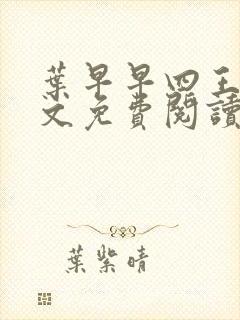 葉早早四王
文免費閱讀
葉紫晴